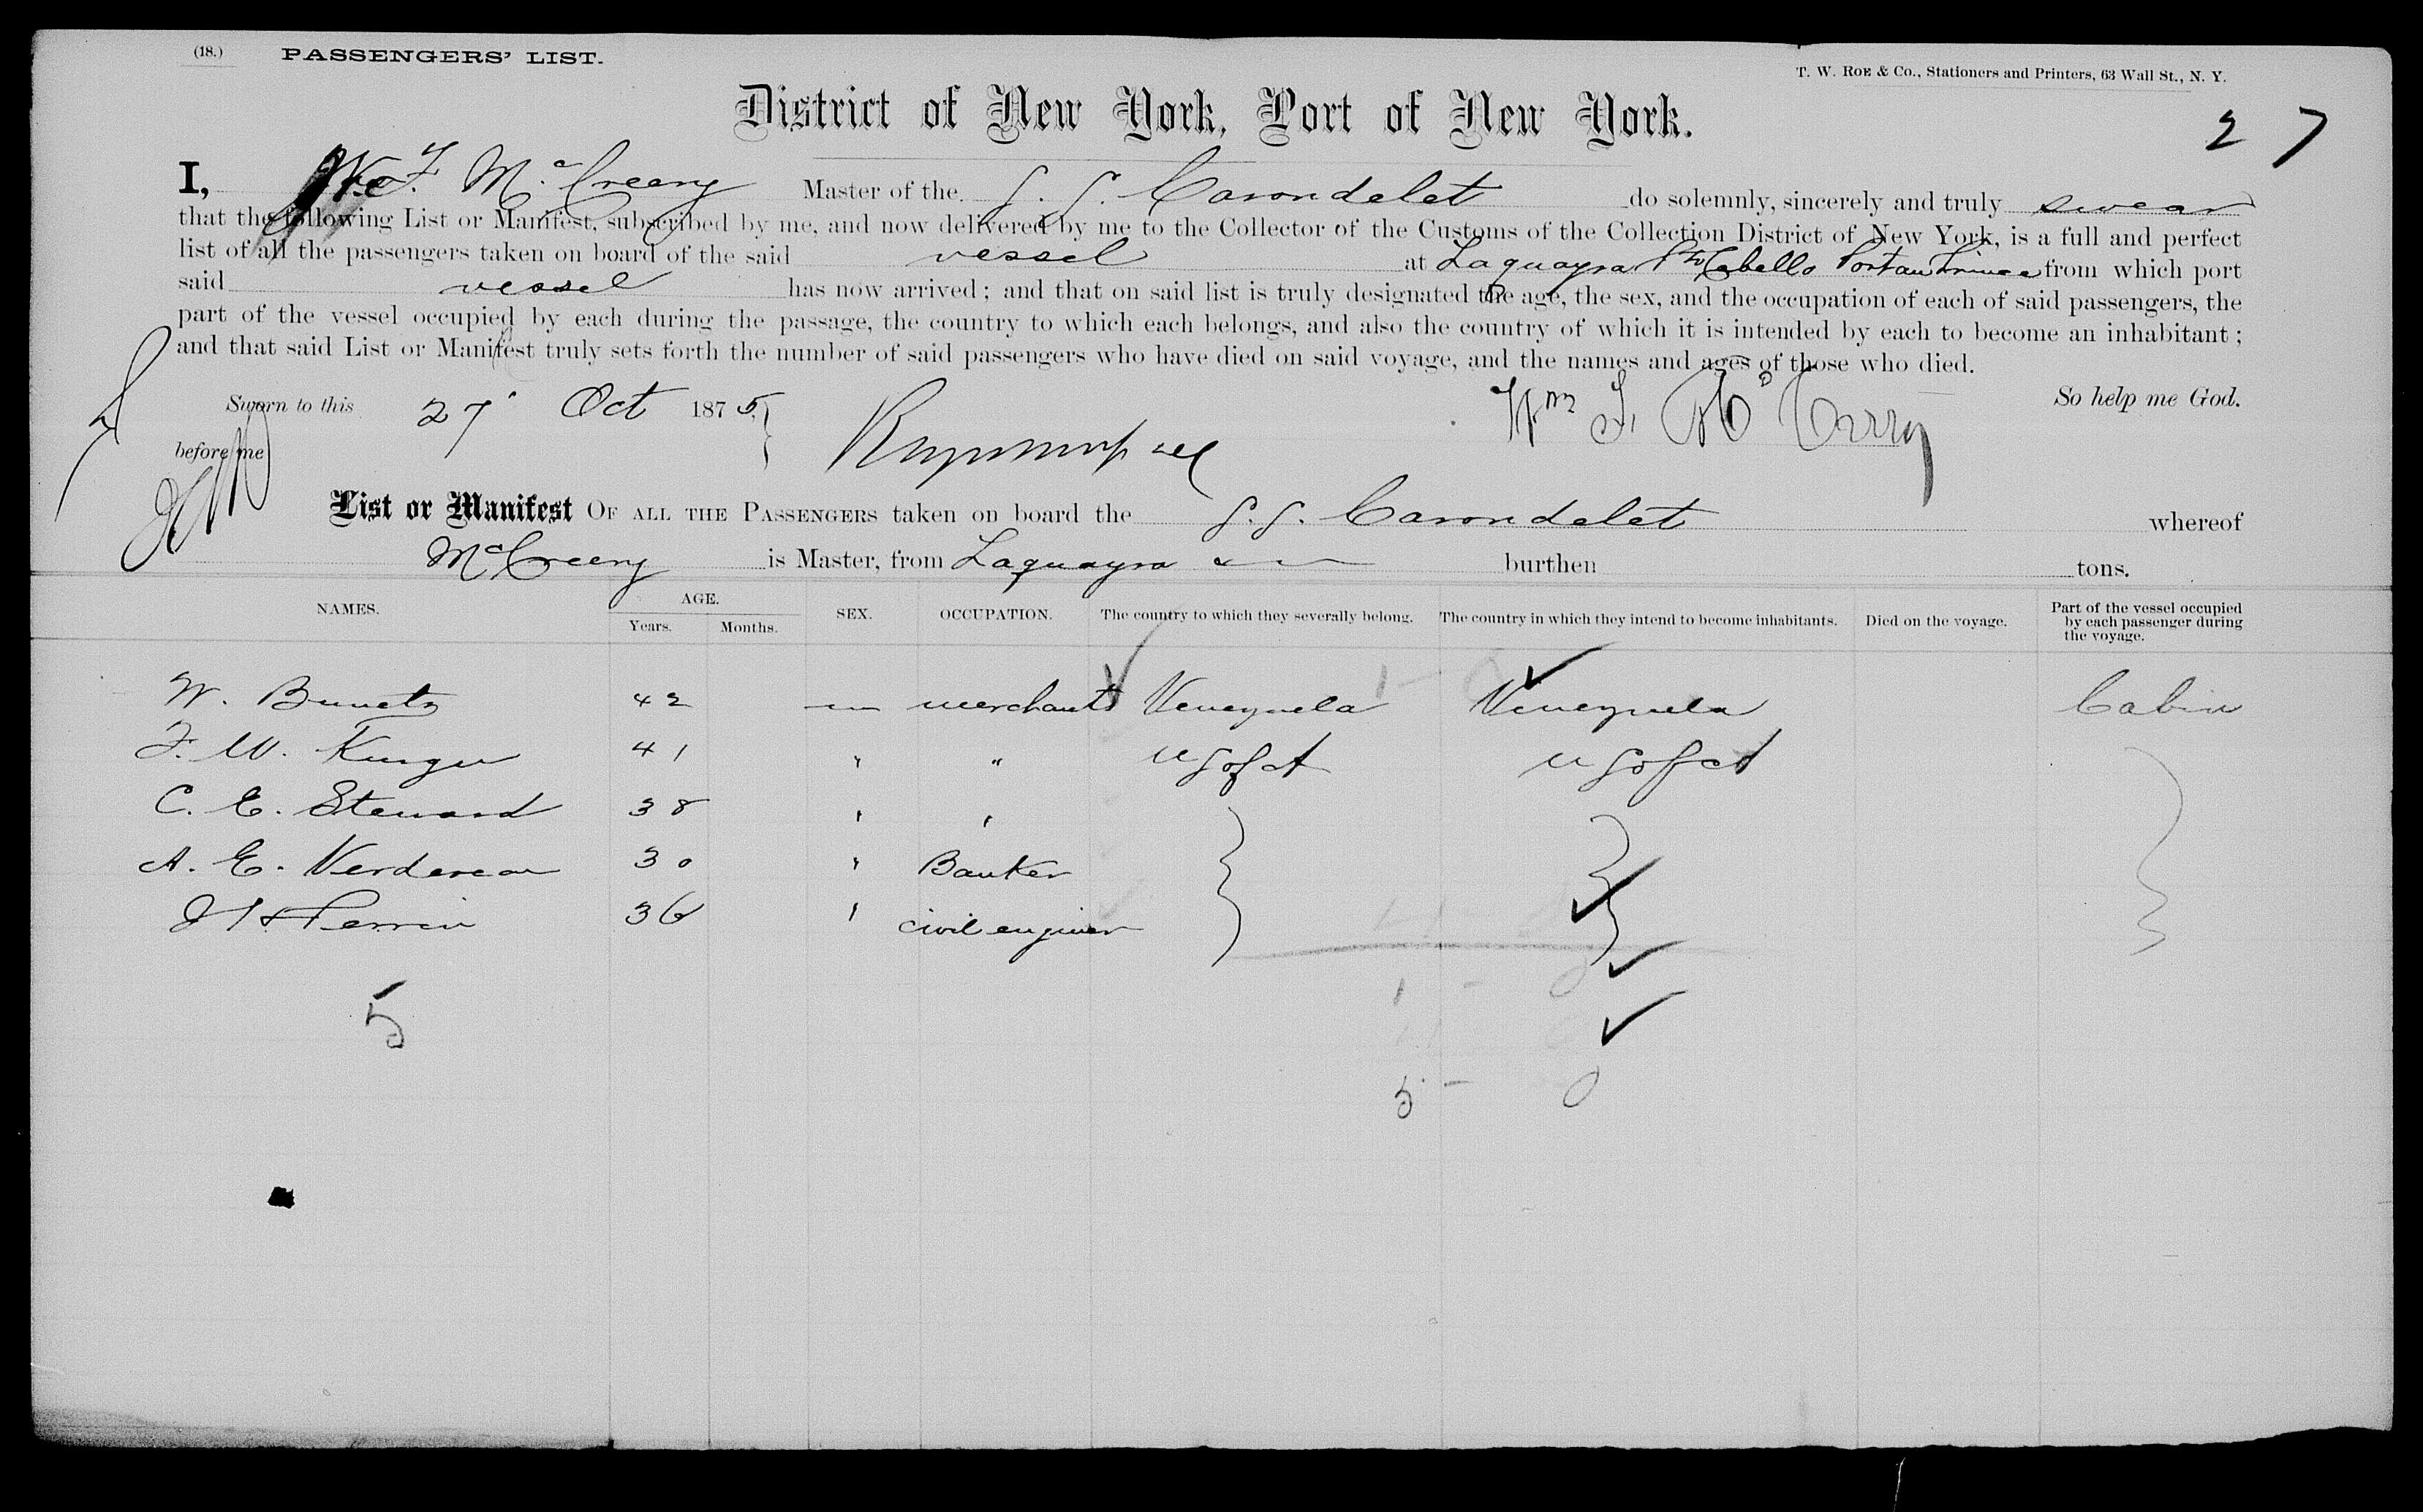 (18.) PASSENGERS' LIST.
T. W. ROE & Co., Stationers and Printers, 63 Wall St., N. Y.
District of New York, Port of New York.
27
I, Wm F. McCreery Master of the S. S. Carondelet do solemnly, sincerely and truly swear
that the following List or Manifest, subscribed by me, and now delivered by me to the Collector of the Customs of the Collection District of New York, is a full and perfect
list of all the passengers taken on board of the said vessel at Laguayra Pto Cabello Port au Prince from which port
said vessel has now arrived; and that on said list is truly designated the age, the sex, and the occupation of each of said passengers, the
part of the vessel occupied by each during the passage, the country to which each belongs, and also the country of which it is intended by each to become an inhabitant;
and that said List or Manifest truly sets forth the number of said passengers who have died on said voyage, and the names and ages of those who died.
Sworn to this 27 Oct 1875 So help me God.
before me
List or Manifest OF ALL THE PASSENGERS taken on board the S. S. Carondelet whereof
McCreery is Master, from Laguayra burthen tons.
NAMES. AGE. Years. Months. SEX. OCCUPATION. The country to which they severally belong. The country in which they intend to become inhabitants. Died on the voyage. Part of the vessel occupied by each passenger during the voyage.
W. 42 m merchant Venezuela Venezuela Cabin
F. W. 41 " " U S of A U S of A
C. E. Steward 38 " "
A. E. 30 " Banker
Perrin 36 " civil engineer
5
1 - 0
5 - 0